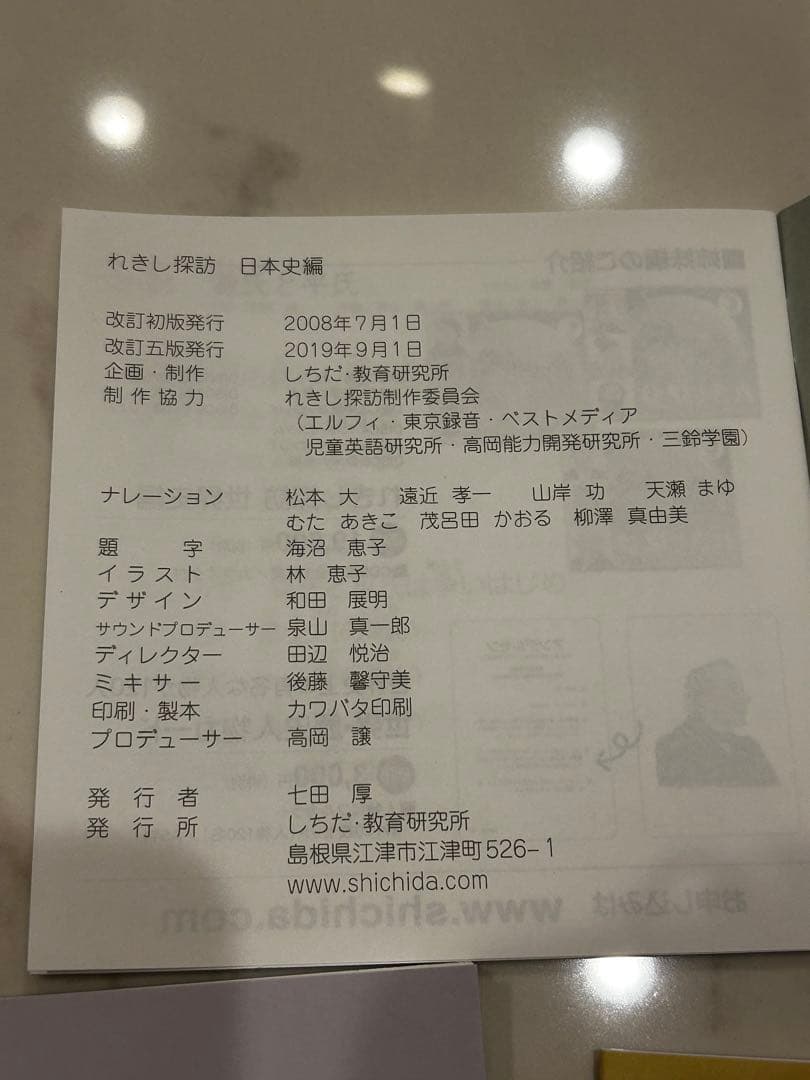 れきし探訪　日本史編
改訂初版発行　2008年7月1日
改訂五版発行　2019年9月1日
企画・制作　しちだ・教育研究所
制作協力　れきし探訪制作委員会
（エルフィ・東京録音・ベストメディア
児童英語研究所・高岡能力開発研究所・三鈴学園）
ナレーション　松本 大　遠近 孝一　山岸 功　天瀬 まゆ
むた あきこ　茂呂田 かおる　柳澤 真由美
題字　海沼 恵子
イラスト　林 恵子
デザイン　和田 展明
サウンドプロデューサー　泉山 真一郎
ディレクター　田辺 悦治
ミキサー　後藤 馨守美
印刷・製本　カワバタ印刷
プロデューサー　高岡 譲
発行者　七田 厚
発行所　しちだ・教育研究所
島根県江津市江津町526-1
www.shichida.com